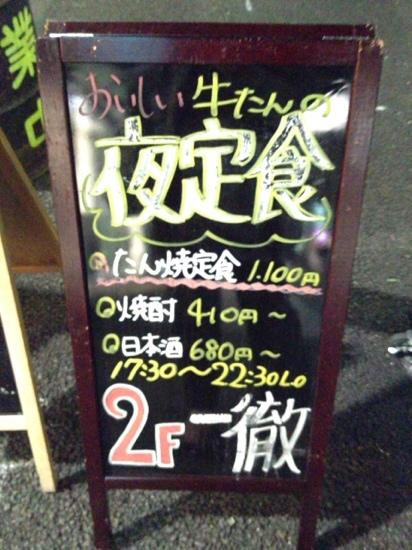 業中
おいしい牛たんの
夜定食
たん焼定食 1.100円
焼酎 410円〜
日本酒 680円〜
17:30〜22:30LO
2F 一徹